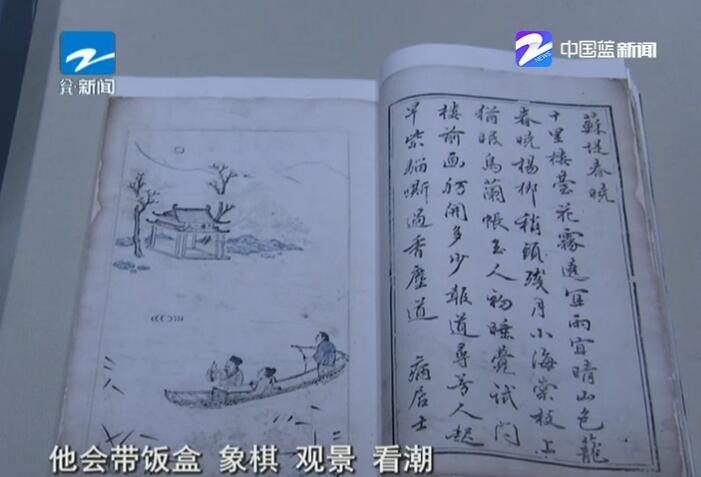 新闻
中国蓝新闻
NEWS
蘇堤春曉
十里樓臺花霧遶宜雨宜晴山色籠
春曉楊柳梢頭殘月小海棠枝上
猶眠鳥蘭帳玉人初睡覺試問
樓前画舫開多少報道尋芳人起
早紫騮嘶過香塵道 病居士
他会带饭盒 象棋 观景 看潮